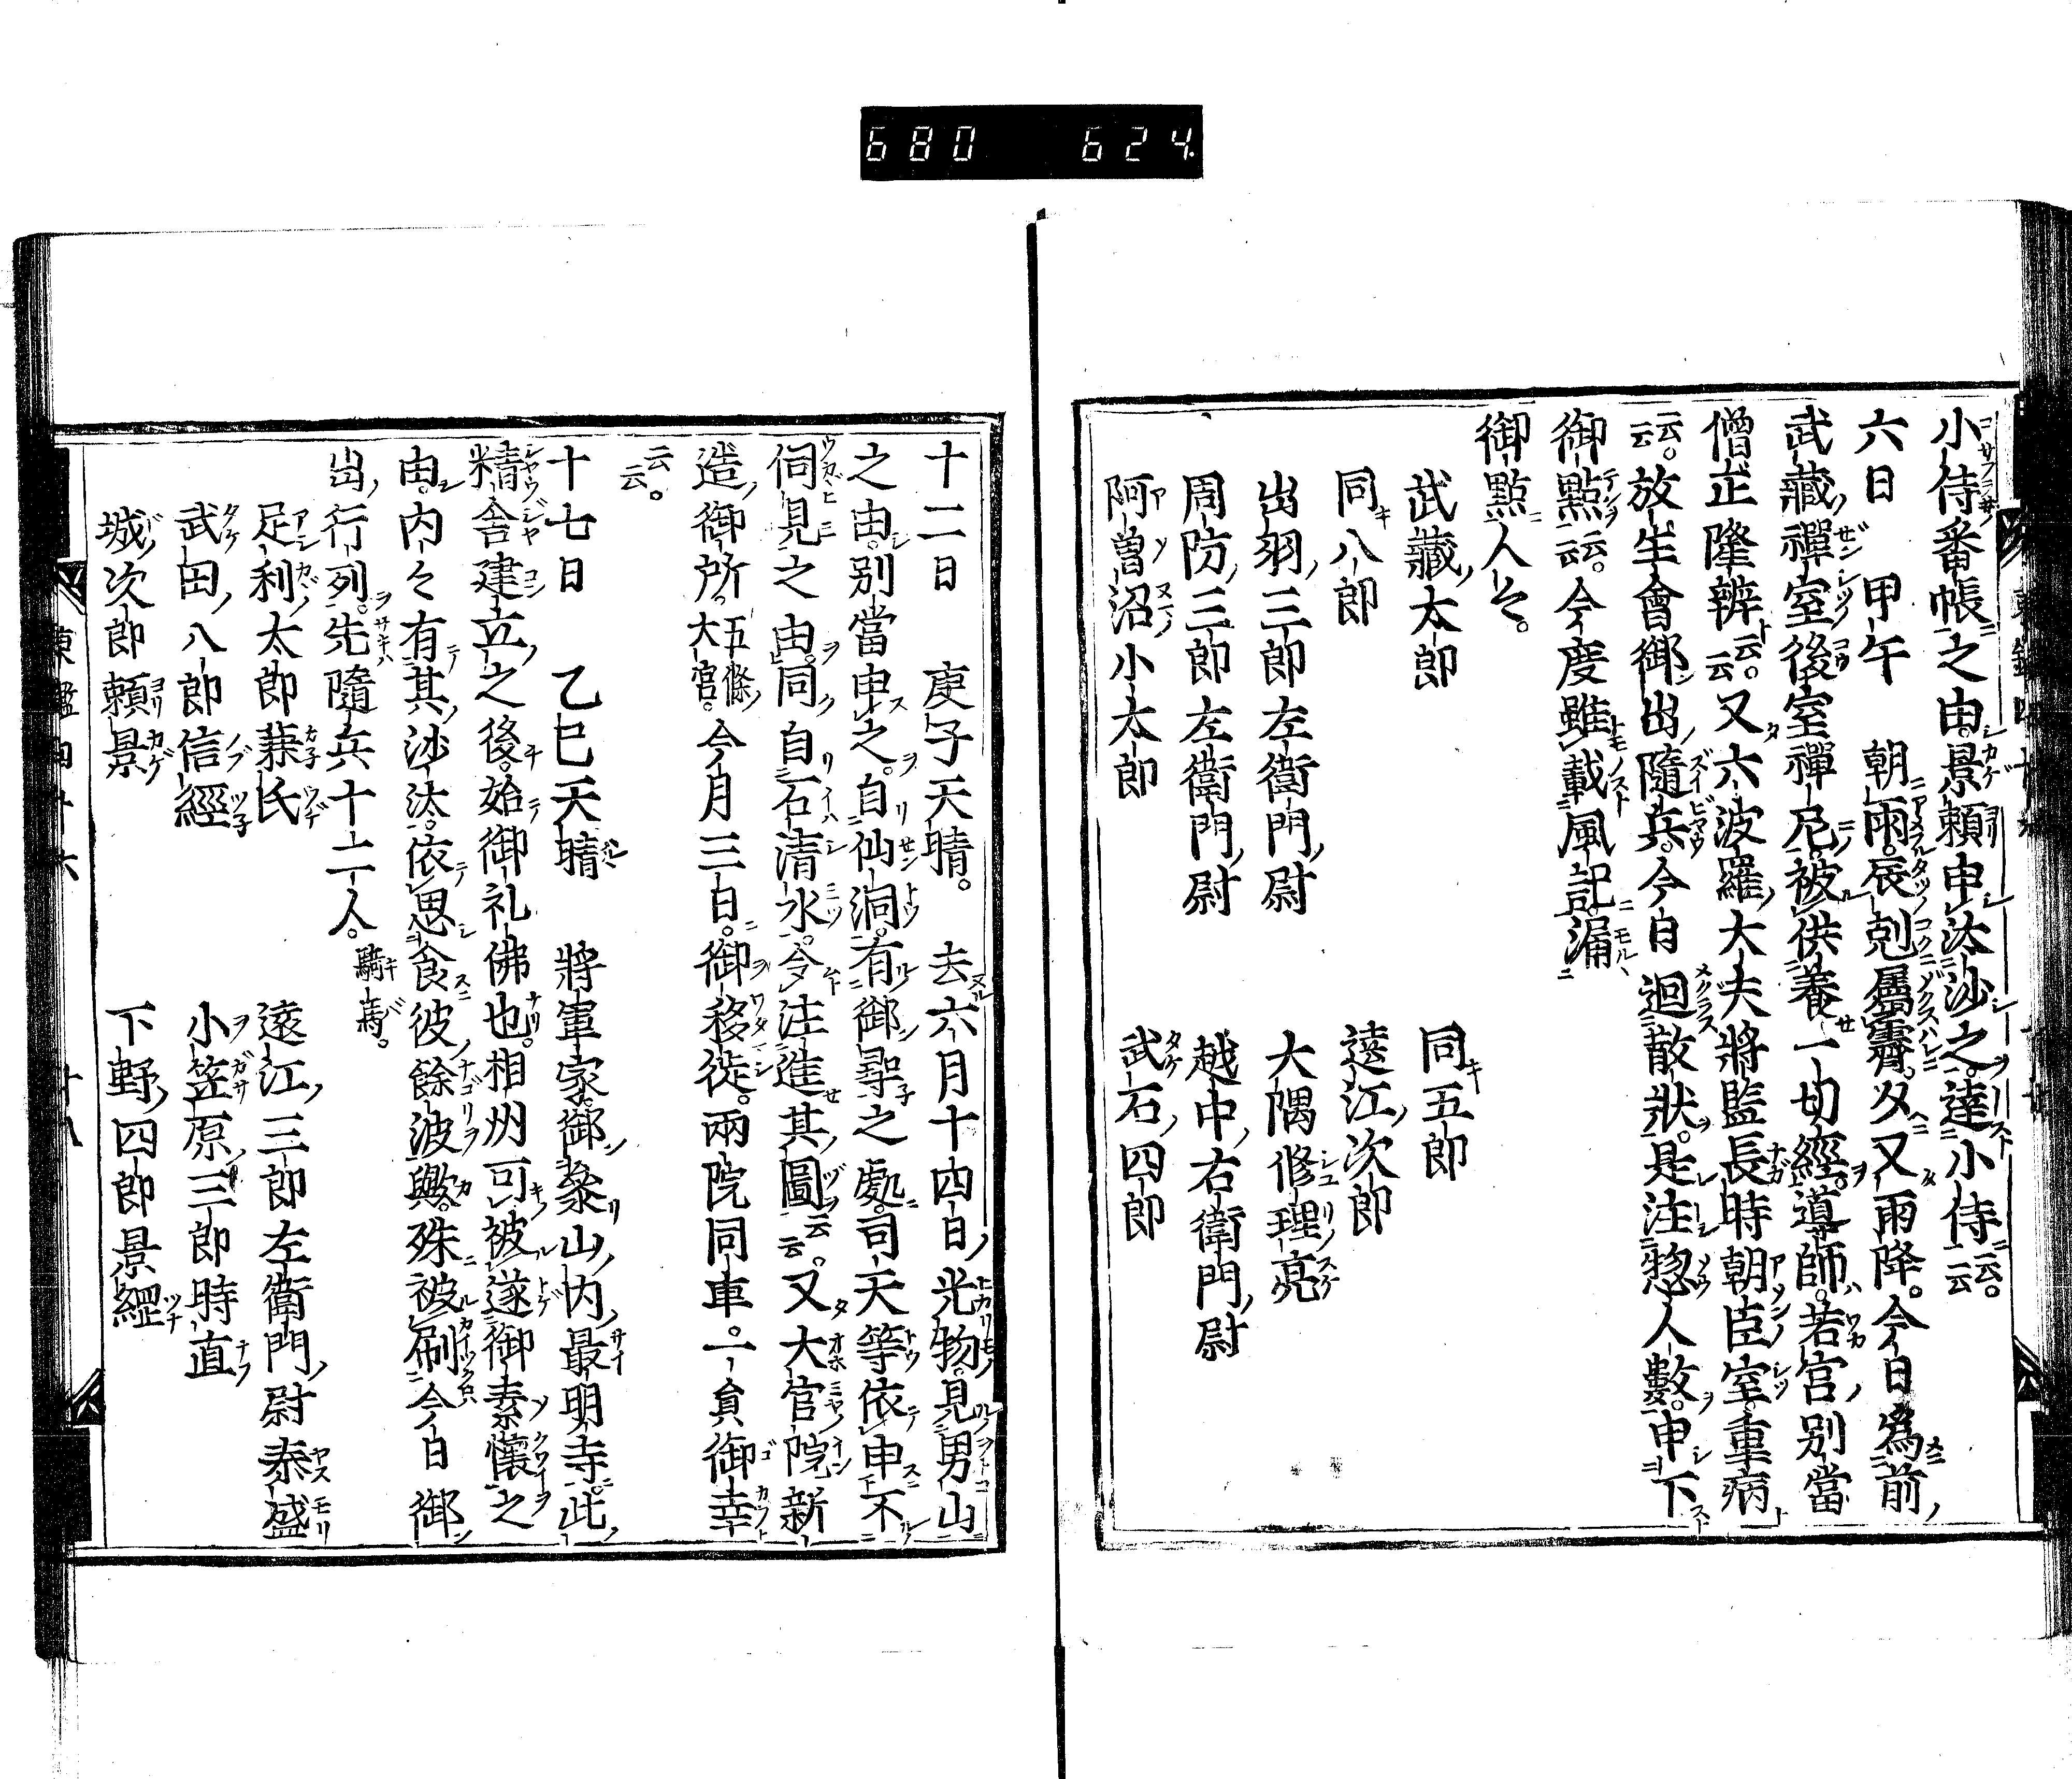 680 624
小侍番帳之由。景頼申汰沙之。達小侍云云。
六日 甲午 朝雨。辰剋屬霽。夕又雨降。今日爲前
武藏禪室後室禪尼。被供養一切經。導師。若宮別當
僧正隆辨云云。又六波羅大夫將監長時朝臣室。重病
云云。放生會御出隨兵。今日迴散狀。是注惣人數。申下
御點云云。今度雖載風記。漏
御點人々。
武藏太郎 同五郎
同八郎 遠江次郎
出羽三郎左衛門尉 大隅修理亮
周防三郎左衛門尉 越中右衛門尉
阿曽沼小太郎 武石四郎
十二日 庚子天晴。 去六月十四日光物。見男山
之由。別當申之。自仙洞。有御尋之處。司天等依申不
伺見之由。同自石清水。令注進其圖云云。又大宮院新
造御所。五條大宮。今月三日。御移徙。兩院同車。一員御幸
云云。
十七日 乙巳天晴 將軍家。御參山内最明寺。此
精舍建立之後。始御礼佛也。相州可被遂御素懷之
由。内々有其沙汰。依思食彼餘波歟。殊被刷今日御
出行列。先隨兵十二人。騎馬。
足利太郎兼氏 遠江三郎左衛門尉泰盛
武田八郎信經 小笠原三郎時直
城次郎頼景 下野四郎景經
東鑑四十六 十八